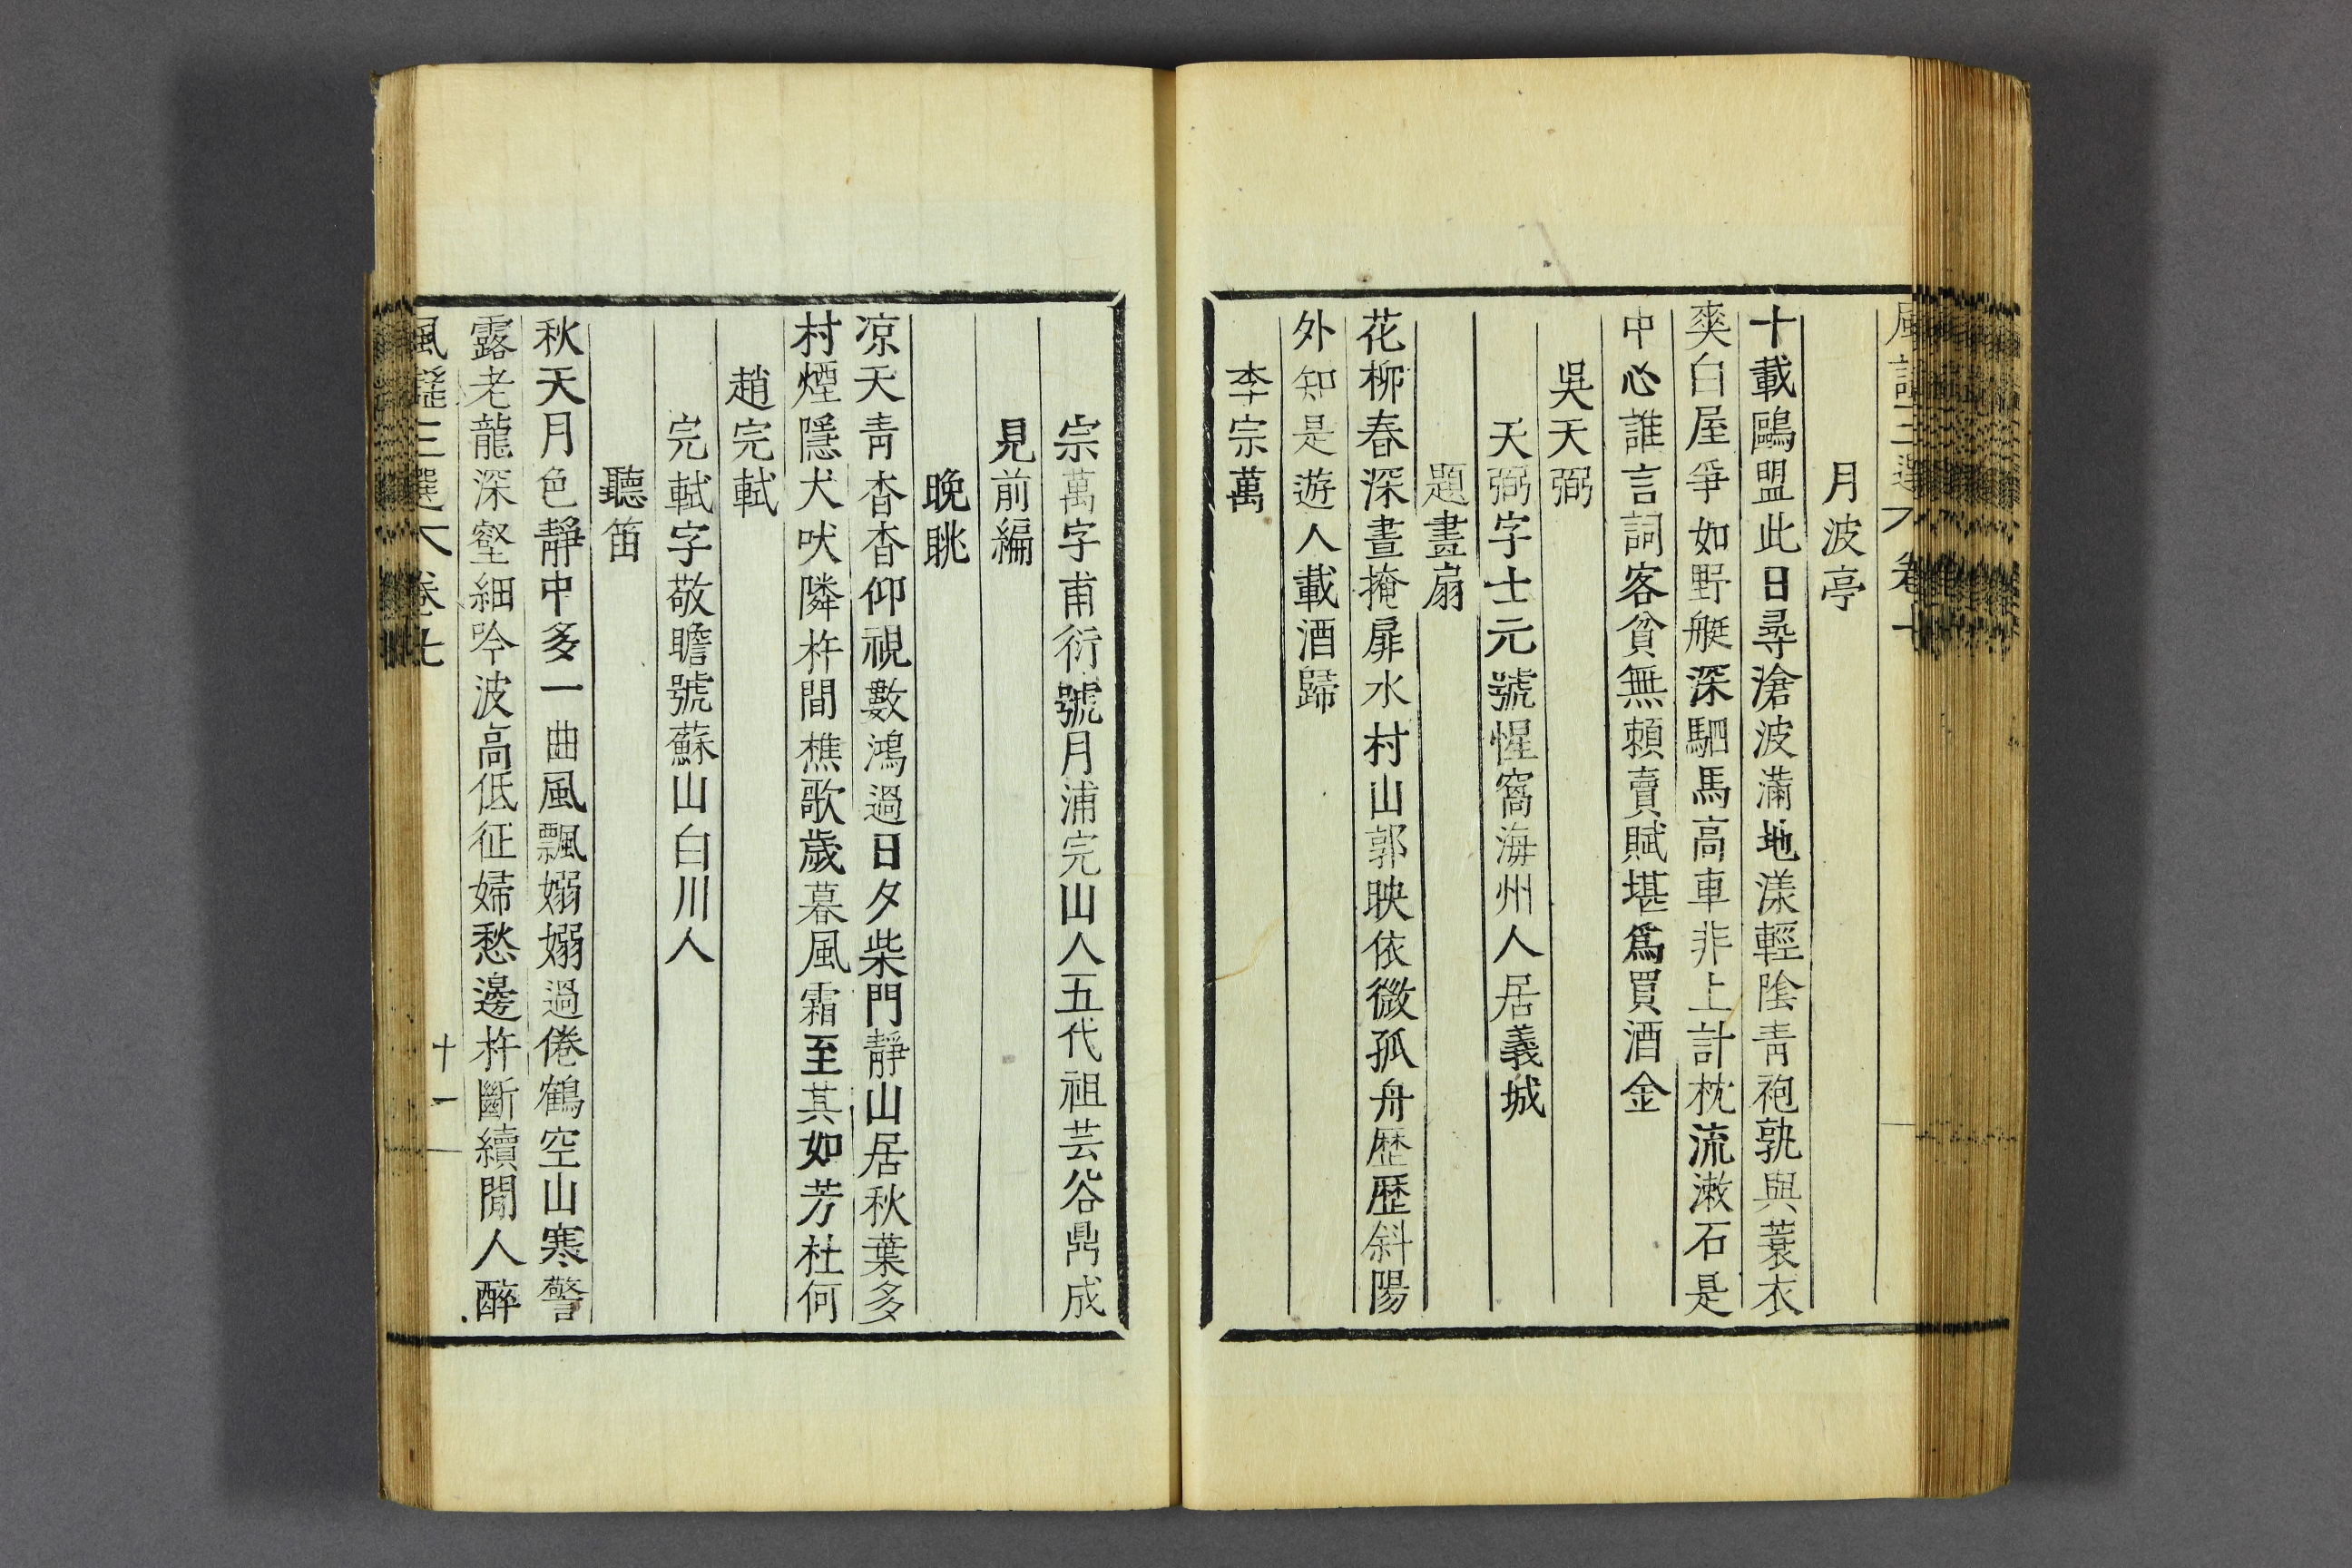 月波亭
十載鷗盟此日尋滄波滿地漾輕陰青袍孰與蓑衣
爽白屋爭如野艇深駟馬高車非上計枕流漱石是
中心誰言詞客貧無賴賣賦堪爲買酒金
吳天弼
天弼字士元號惺窩海州人居義城
題畫扇
花柳春深晝掩扉水村山郭映依微孤舟歷歷斜陽
外知是遊人載酒歸
李宗萬
宗萬字甫衍號月浦完山人五代祖芸谷鼎成
見前編
晩眺
凉天靑杳杳仰視數鴻過日夕柴門靜山居秋葉多
村煙隱犬吠隣杵間樵歌歲暮風霜至其如芳杜何
趙完軾
完軾字敬瞻號蘇山白川人
聽笛
秋天月色靜中多一曲風飄嫋嫋過倦鶴空山寒警
露老龍深壑細吟波高低征婦愁邊杵斷續閒人醉
風謠三選 卷七
十一